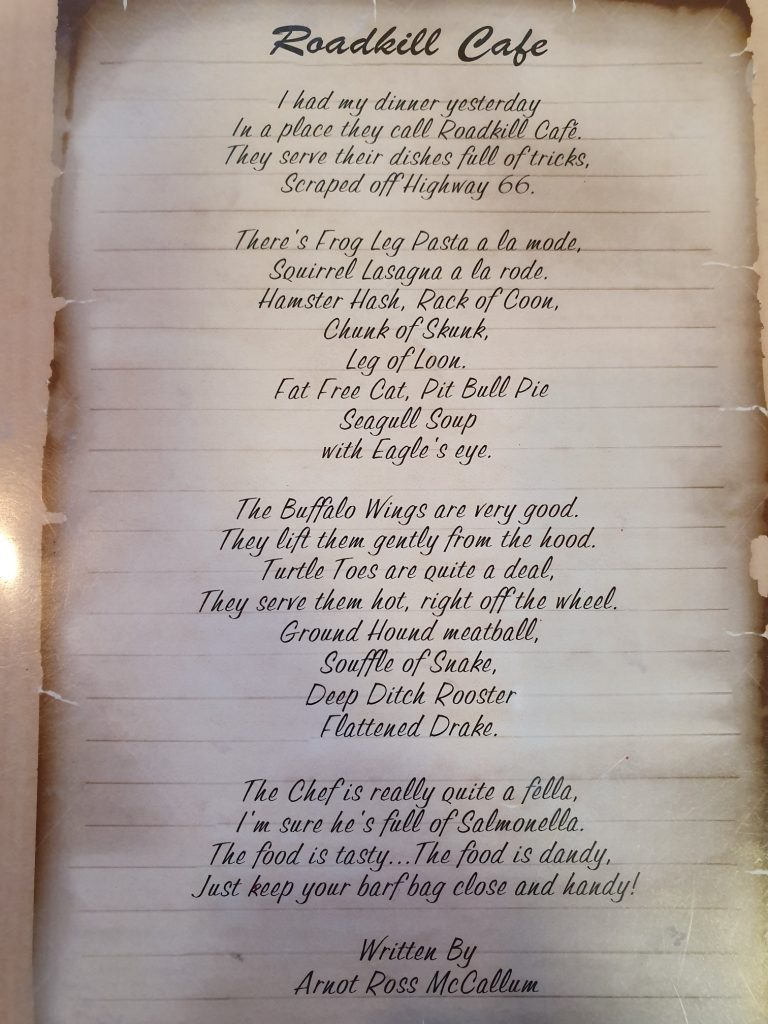 Roadkill Cafe
I had my dinner yesterday
In a place they call Roadkill Café.
They serve their dishes full of tricks,
Scraped off Highway 66.
There's Frog Leg Pasta a la mode,
Squirrel Lasagna a la rode.
Hamster Hash, Rack of Coon,
Chunk of Skunk,
Leg of Loon.
Fat Free Cat, Pit Bull Pie
Seagull Soup
with Eagle's eye.
The Buffalo Wings are very good.
They lift them gently from the hood.
Turtle Toes are quite a deal,
They serve them hot, right off the wheel.
Ground Hound meatball,
Souffle of Snake,
Deep Ditch Rooster
Flattened Drake.
The Chef is really quite a fella,
I'm sure he's full of Salmonella.
The food is tasty...The food is dandy,
Just keep your barf bag close and handy!
Written By
Arnot Ross McCallum